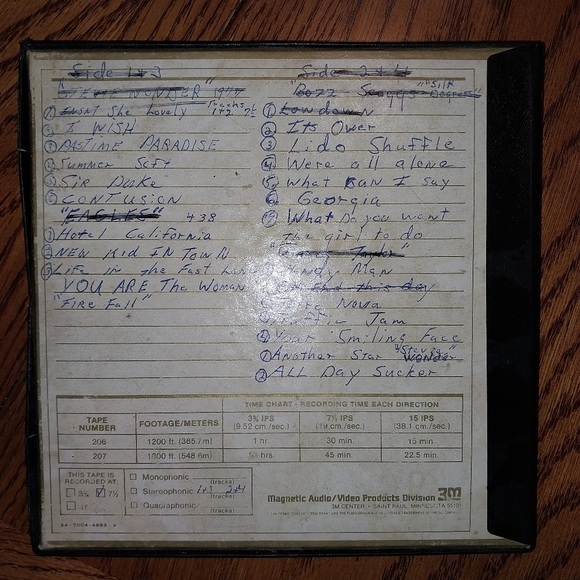 Side 1+3
"STEVIE WONDER" 1977
① Isn't She Lovely Tracks 1+2
② I WISH
③ PASTIME PARADISE
④ Summer Soft
⑤ Sir Duke
⑥ CONTUSION
"EAGLES" 438
① Hotel California
② NEW KID IN TOWN
③ LIFE in the Fast Lane
YOU ARE The Woman
"Fire Fall"
Side 2+4
"Bozz Scaggs" "Silk Degrees"
① Lowdown
② Its Over
③ Lido Shuffle
④ Were all alone
⑤ what Can I say
⑥ Georgia
⑦ What Do you want
the girl to do
Taylor"
Handy Man
this day
Nova
Traffic Jam
Your Smiling Face
① Another Star "Stevie Wonder"
② ALL Day Sucker
TIME CHART - RECORDING TIME EACH DIRECTION
TAPE NUMBER FOOTAGE/METERS 3¾ IPS (9.52 cm./sec.) 7½ IPS (19 cm./sec.) 15 IPS (38.1 cm./sec.)
206 1200 ft. (365.7m) 1 hr 30 min. 15 min.
207 1800 ft. (548.6m) hrs. 45 min. 22.5 min.
THIS TAPE IS RECORDED AT:
3¾ 7½
15
Monophonic (tracks)
Stereophonic 1+3 2+4 (tracks)
Quadraphonic (tracks)
Magnetic Audio/Video Products Division 3M
3M CENTER • SAINT PAUL, MINNESOTA 55101